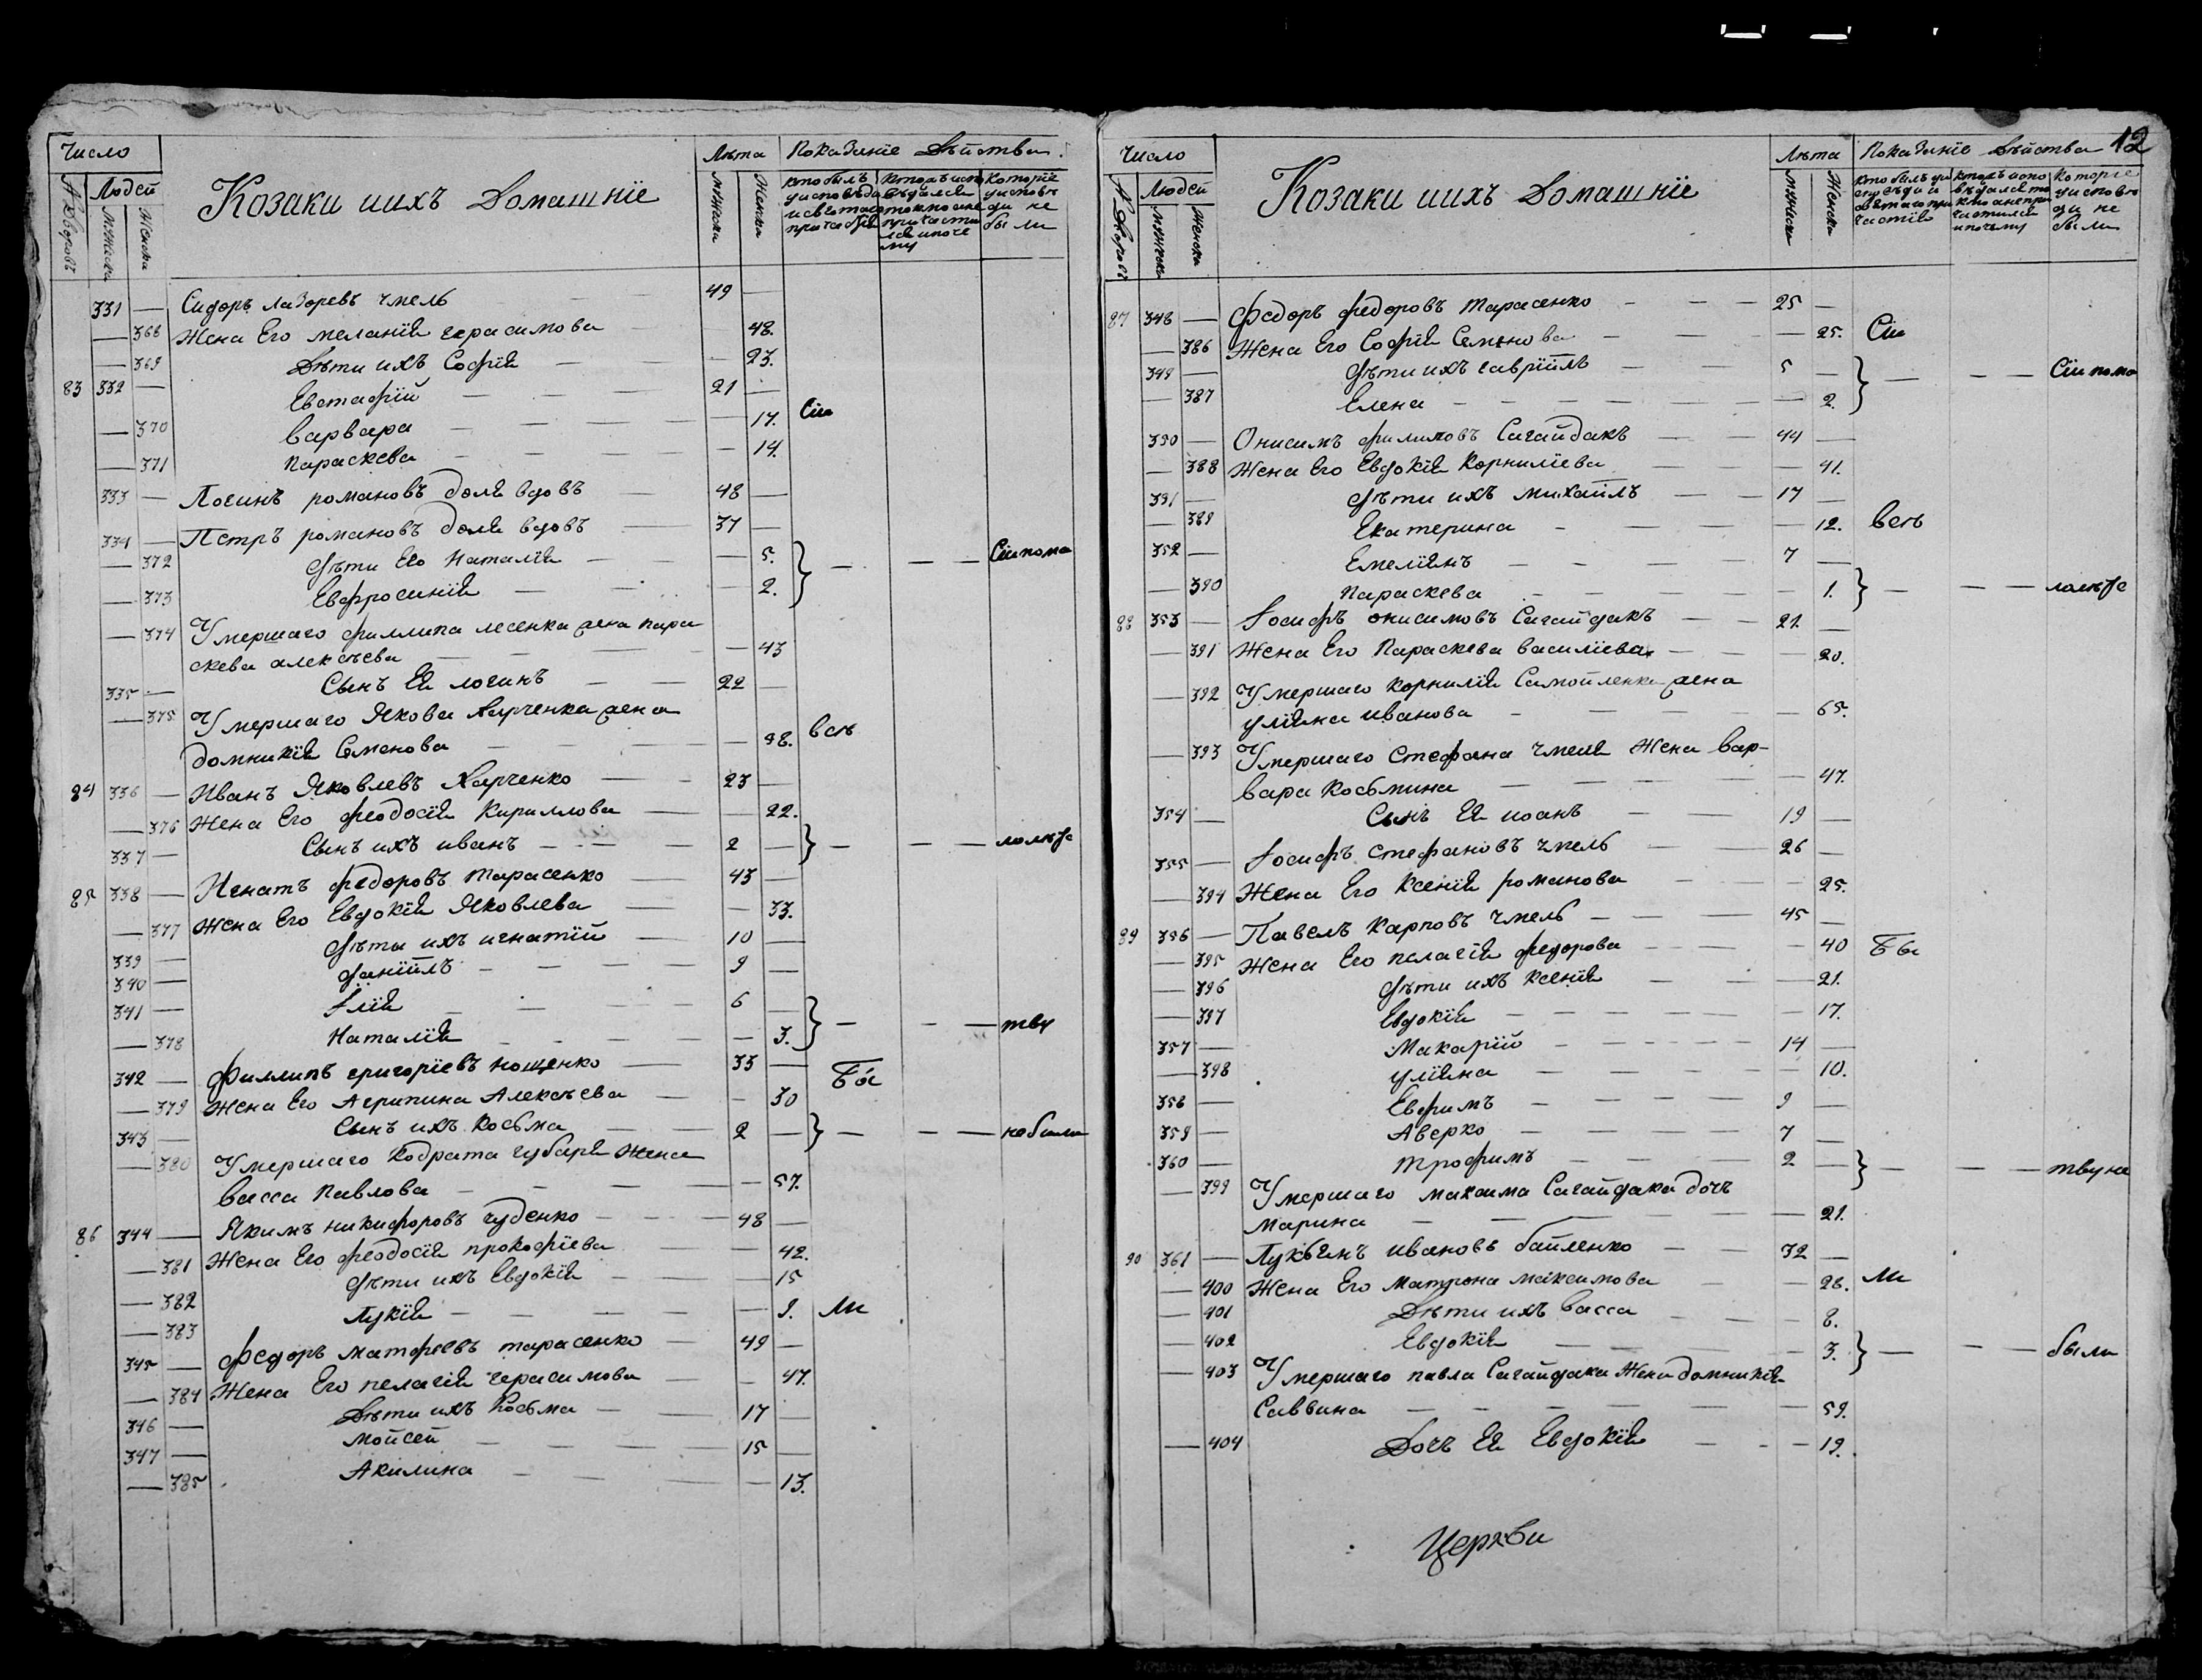 Число
Людей
№ Дворовъ
Мужеска
Женска
Козаки иихъ Домашнїе
Лѣта
Мужеска
Женска
Показанїе Дѣйства.
331 — Сидоръ лазоревъ чмель — — 49 —
— 368 Жена Его меланїя герасимова 48.
— 369 Дѣти ихъ Софїя — — — 23.
83 332 — Евстафїй — — — 21 —
— 370 варвара — — — — 17. Сїи
— 371 параскева — — — — 14.
333 — Логинъ романовъ доля вдовъ — 48 —
334 — Петръ романовъ доля вдовъ — 37 —
— 372 Дѣти Его Наталїя — — — 5. } — — — Сїи пома
— 373 Евфросинїя — — — 2.
— 374 Умершаго филлипа лесенка жена пара
скева алексѣева — — — — 43
335 — Сынъ Ея логинъ — — 22 —
— 375 Умершаго Якова Харченка жена
домникїя Семенова — — — 48. всѣ
84 336 — Иванъ Яковлевъ Харченко — — 23 —
— 376 Жена Его феодосїя Кириллова — — 22.
337 — Сынъ ихъ иванъ — — — 2 — } — — — лолѣтс
85 338 — Игнатъ федоровъ Тарасенко — 43 —
— 377 Жена Его Евдокїя Яковлева — — 33.
339 — Дѣты ихъ игнатїй — 10 —
340 — Данїилъ — — — — 9 —
341 — Илїя — — — 6 — } — — — тву
— 378 Наталїя — — — — — 3.
342 — Филлипъ григорїевъ нощенко — 33 — Бы
— 379 Жена Его Агрипина Алексѣева — — 30
343 — Сынъ ихъ Косьма — — 2 — } — — — небыли
— 380 Умершаго Кодрата губаря Жена
васса павлова — — — — — 57.
86 344 — Якимъ никифоровъ гуденко — — — 48 —
— 381 Жена Его феодосїя прокофїева — — 42.
— 382 Дѣти ихъ Евдокїя — — — 15
— 383 Лукїя — — — — — 9. Ли
345 — Федоръ матфеевъ тарасенко — 49 —
— 384 Жена Его пелагїя герасимова — — 47.
346 — Дѣти ихъ Косьма — — 17 —
347 — мойсей — — — — 15 —
— 385 Акилина — — — — 13.
12
Число
Людей
№ Дворовъ
Мужеска
Женска
Козаки иихъ Домашнїе
Лѣта
Мужеска
Женска
Показанїе Дѣйства
87 348 — Федоръ федоровъ тарасенко — — — 25 —
— 386 Жена Его Софїя Семенова — — — 25. Сїи
349 — Дѣти ихъ гаврїилъ — — 5 — } — — — Сїи пома
— 387 Елена — — — — — — — 2.
350 — Онисимъ филиповъ Сагайдакъ — — 44 —
— 388 Жена Его Евдокїя Корнилїева — — 41.
351 — Дѣти ихъ михаилъ — — 17 —
— 389 Екатерина — — — — 12. всѣ
352 — Емелїянъ — — — — 7 —
— 390 параскева — — — — — 1. } — — — лолѣтс
88 353 — Иосифъ онисимовъ Сагайдакъ — — 21. —
— 391 Жена Его Параскева василїева — — — 20.
— 392 Умершаго Корнилїя Самойленка жена
улїяна иванова — — — — 65.
— 393 Умершаго Стефана чмеля Жена вар-
вара Косьмина — — — — — 47.
354 — Сынъ Ея иоанъ — — 19 —
355 — Иосифъ Стефановъ чмель — — 26 —
— 394 Жена Его Ксенїя романова — — — 25.
89 356 — Павелъ Карповъ чмель — — — 45 —
— 395 Жена Его пелагїя федорова — — — 40 Бы
— 396 Дѣти ихъ Ксенїя — — — 21.
— 397 Евдокїя — — — — — — 17.
357 — Макарїй — — — — — 14 —
— 398 улїяна — — — — — 10.
358 — Ефимъ — — — — 9 —
359 — Аверко — — — — 7 —
360 — трофимъ — — — 2 — } — — — тву не
— 399 Умершаго максима Сагайдака дочь
марина — — — — — — 21.
90 361 — Лукьянъ ивановъ байленко — — 32 —
— 400 Жена Его матрона максимова — — 28. Ли
— 401 Дѣти ихъ васса — — — 8.
— 402 Евдокїя — — — — 3. } — — — были
— 403 Умершаго павла Сагайдака Жена домникїя
Саввина — — — — — — 59.
— 404 Дочь Ея Евдокїя — — — 19.
Церкви